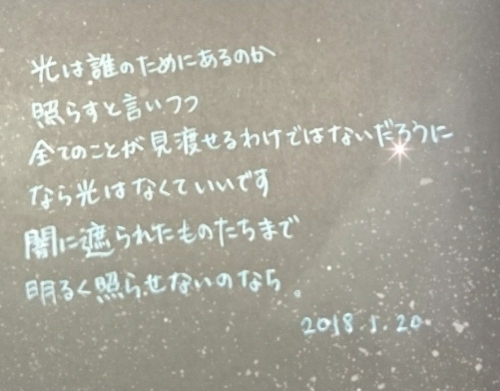 光は誰のためにあるのか
照らすと言いつつ
全てのことが見渡せるわけではないだろうに
なら光はなくていいです
闇に遮られたものたちまで
明るく照らせないのなら。
2018.1.20